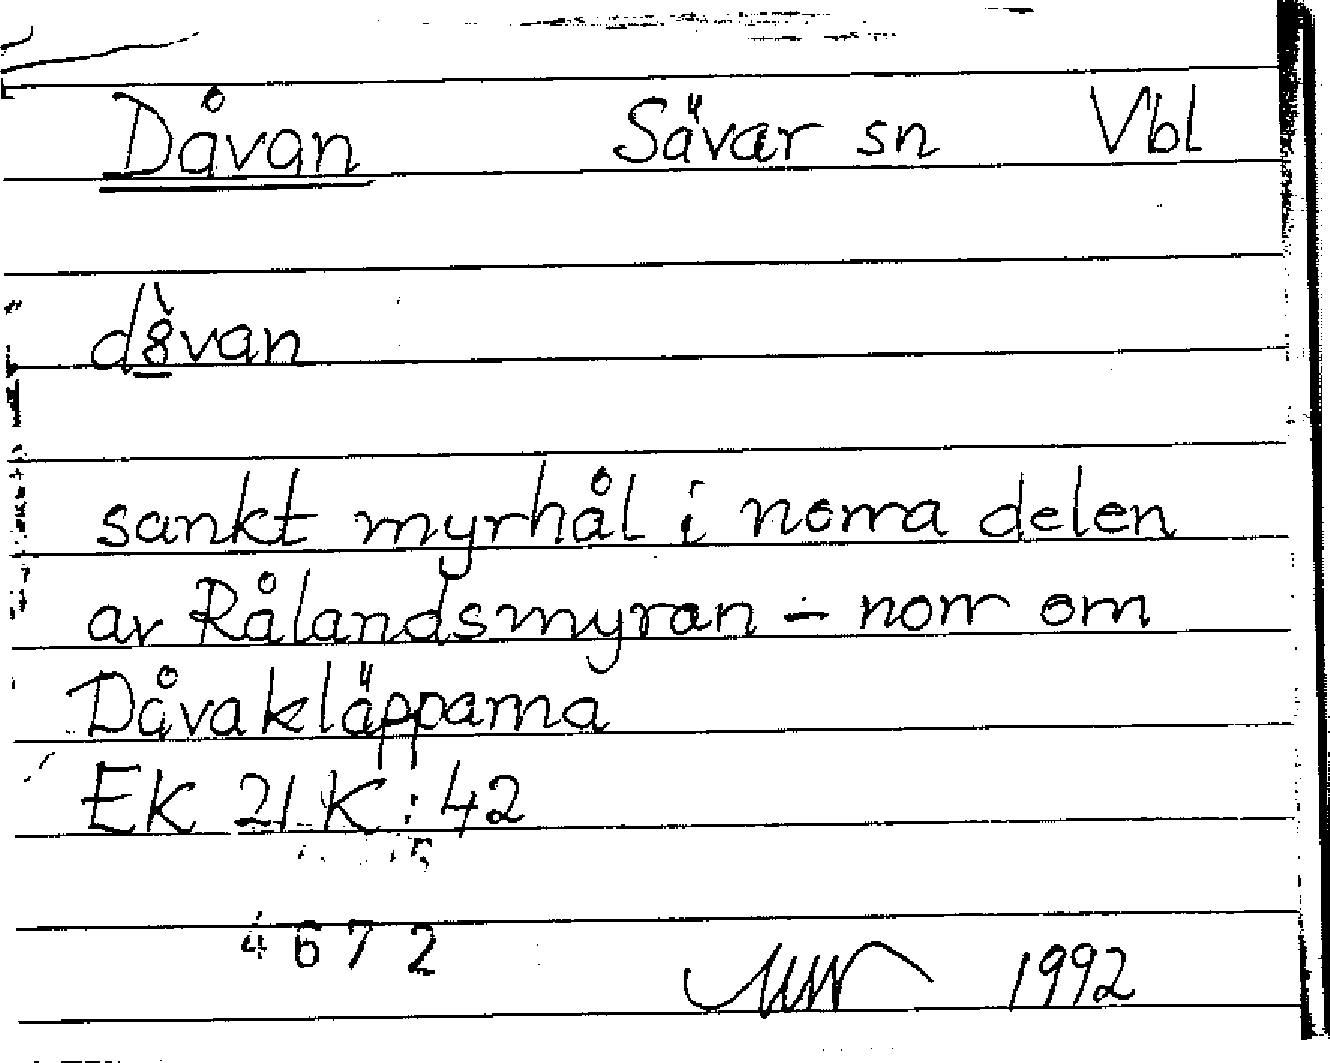 Dåvan Sävar sn Vbl
sankt myrhål i norra delen
av Rålandsmyran - norr om
Dåvakläpparna
EK 21 K : 42
4672
1992